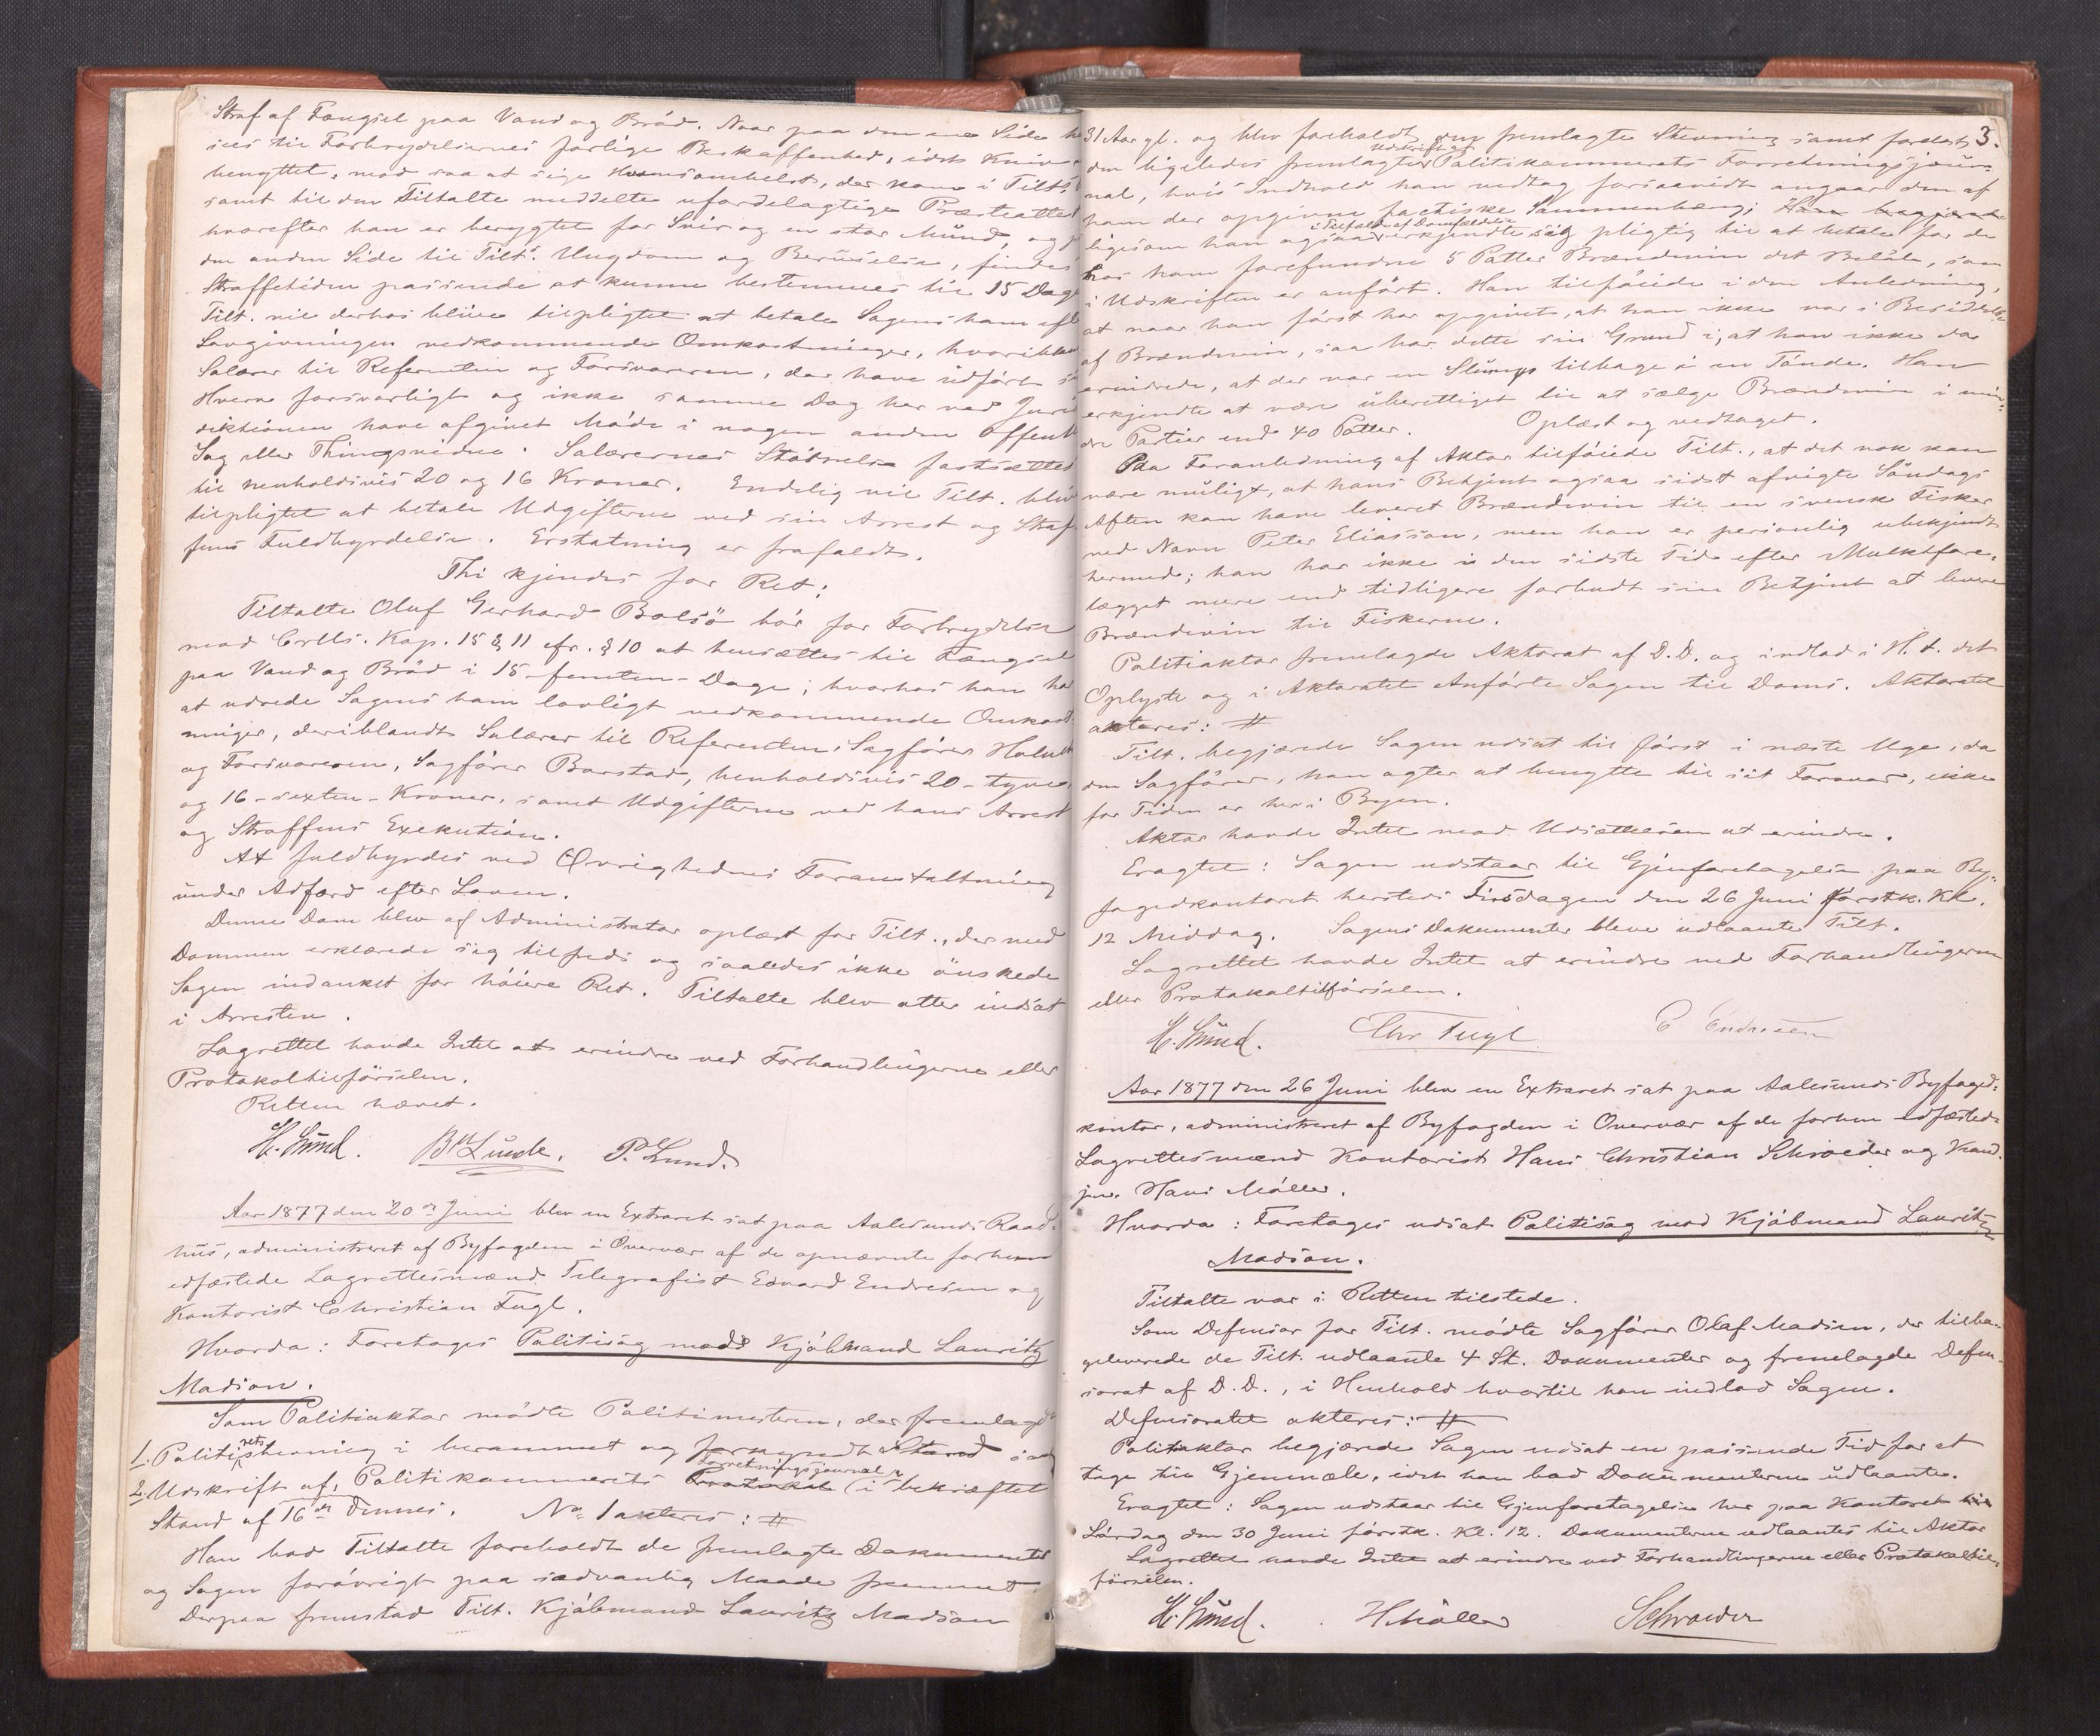 Straf af Fængsel paa Vand og Bröd. Naar paa den ene Side
sees til Forbrydelsernes farlige Beskaffenhed, idet Kniv
benyttet, mod saa at sige Hvemsomhelst, der kom i Tilts
samt til den Tiltalte meddelte ufordelagtige Præsteattest
hvorefter han er berygtet for Svir og en stor Mund, og
den anden Side til Tilts. Ungdom og Beruselse, findes
Straffetiden passende at kunne bestemmes til 15 Dage
Tilt. vil derhos blive tilpligtet at betale Sagens ham efter
Lovgivningen vedkommende Omkostninger, hvoriblandt
Salærer til Referenten og Forsvareren, der have udført
Hverv forsvarligt og ikke samme Dag her ved Juris
diktionen have afgivet Møde i nogen anden offent
Sag eller Thingsvidne. Salærernes Størrelse fastsættes
til henholdsvis 20 og 16 Kroner. Endelig vil Tilt. blive
tilpligtet at betale Udgifterne ved sin Arrest og Straf
fens Fuldbyrdelse. Erstatning er frafaldt.
Thi kjendes for Ret:
Tiltalte Oluf Gerhard Bolsö bör for Forbrydelse
mod Crlls. Kap. 15 § 11 cfr. § 10 at hensættes til Fængsel
paa Vand og Bröd i 15 - femten - Dage; hvorhos han har
at udrede Sagens ham lovligt vedkommende Omkost-
ninger, deriblandt Salærer til Referenten, Sagfører
og Forsvareren, Sagfører Barstad, henholdsvis 20 - tyve
og 16 - sexten - Kroner, samt Udgifterne ved hans Arrest
og Straffens Exekution.
At fuldbyrdes ved Øvrighedens Foranstaltning
under Adfærd efter Loven.
Denne Dom blev af Administrator oplæst for Tilt., der med
Dommen erklærede sig tilfreds og saaledes ikke önskede
Sagen indanket for höiere Ret. Tiltalte blev atter indsat
i Arresten.
Lagrettet havde Intet at erindre ved Forhandlingerne eller
Protokoltilförselen.
Retten hævet.
H. Lund. B Lunde. P. Lund.
Aar 1877 den 20de Juni blev en Extraret sat paa Aalesunds Raad-
hus, administreret af Byfogden i Overvær af de opnævnte forhen
edfæstede Lagrettesmænd Telegrafist Edvard Endresen og
Kontorist Christian Fugl.
Hvorda: Foretages Politisag mod Kjöbmand Lauritz
Madson.
Som Politiaktor mödte Politimesteren, der fremlagde
1. Politiretsstevning i berammet og forkyndt Stand samt
2. Udskrift af Politikammerets Forretningsjournal (i bekræftet
Stand af 16de dennes. No 1 akteres: #
Han bad Tiltalte foreholdt de fremlagte Dokumenter
og Sagen forövrigt paa sædvanlig Maade fremmet.
Derpaa fremstod Tilt. Kjöbmand Lauritz Madson
3.
31 Aar gl. og blev foreholdt den fremlagte Stevning samt forelæst
den ligeledes fremlagte Udskrift af Politikammerets Forretningsjour-
nal, hvis Indhold han vedtog forsaavidt angaar den af
ham der opgivne factiske Sammenhæng; Han begjærede
ligesom han ogsaa i Tilfælde af Domfældelse erkjendte sig pligtig til at betale for de
hos ham forefundne 5 Potter Brændevin det Belöb, som
i Udskriften er anført. Han tilföiede i den Anledning,
at naar han först har opgivet, at han ikke var i Besiddelse
af Brændevin, saa har dette sin Grund i, at han ikke da
erindrede, at der var en Slump tilbage i en Tönde. Han
erkjendte at være uberettiget til at sælge Brændevin i min-
dre Partier end 40 Potter. Oplæst og vedtaget.
Paa Foranledning af Aktor tilföiede Tilt., at det nok kan
være muligt, at hans Betjent ogsaa sidst afvigte Söndags
Aften kan have leveret Brændevin til en svensk Fisker
ved Navn Peter Eliasson, men han er personlig ubekjendt
hermed; han har ikke i den sidste Tid efter Mulktfore-
lægget mere end tidligere forbudt sin Betjent at levere
Brændevin til Fiskerne.
Politiaktor fremlagde Aktorat af D.D. og indlod i H. t. det
Oplyste og i Aktoratet Anförte Sagen til Doms. Aktoratet
akteres: #
Tilt. begjærede Sagen udsat til först i næste Uge, da
den Sagförer, han agter at benytte til sit Forsvar, ikke
for Tiden er her i Byen.
Aktor havde Intet mod Udsættelsen at erindre.
Eragtet: Sagen udstaar til Gjenforetagelse paa By-
fogedkontoret hersteds Tirsdagen den 26 Juni förstk. Kl.
12 Middag. Sagens Dokumenter bleve udlaante Tilt.
Lagrettet havde Intet at erindre ved Forhandlingerne
eller Protokoltilförselen.
H. Lund. Chr Fugl E Endresen
Aar 1877 den 26 Juni blev en Extraret sat paa Aalesunds Byfoged-
kontor, administreret af Byfogden i Overvær af de forhen edfæstede
Lagrettesmænd Kontorist Hans Christian Schroeder og Kand.
jur. Hans Möller.
Hvorda: Foretages udsat Politisag mod Kjöbmand Lauritz
Madson.
Tiltalte var i Retten tilstede.
Som Defensor for Tilt. mödte Sagförer Olaf Madsen, der tilba-
geleverede de Tilt. udlaante 4 St. Dokumenter og fremlagde Defen-
sorat af D.D., i Henhold hvortil han indlod Sagen.
Defensoratet akteres: #
Politiaktor begjærede Sagen udsat en passende Tid for at
tage til Gjenmæle, idet han bad Dokumenterne udlaante.
Eragtet: Sagen udstaar til Gjenforetagelse her paa Kontoret
Lördag den 30 Juni förstk. Kl. 12. Dokumenterne udlaantes til Aktor
Lagrettet havde Intet at erindre ved Forhandlingerne eller Protokoltil-
förselen.
H. Lund. H Möller Schroeder